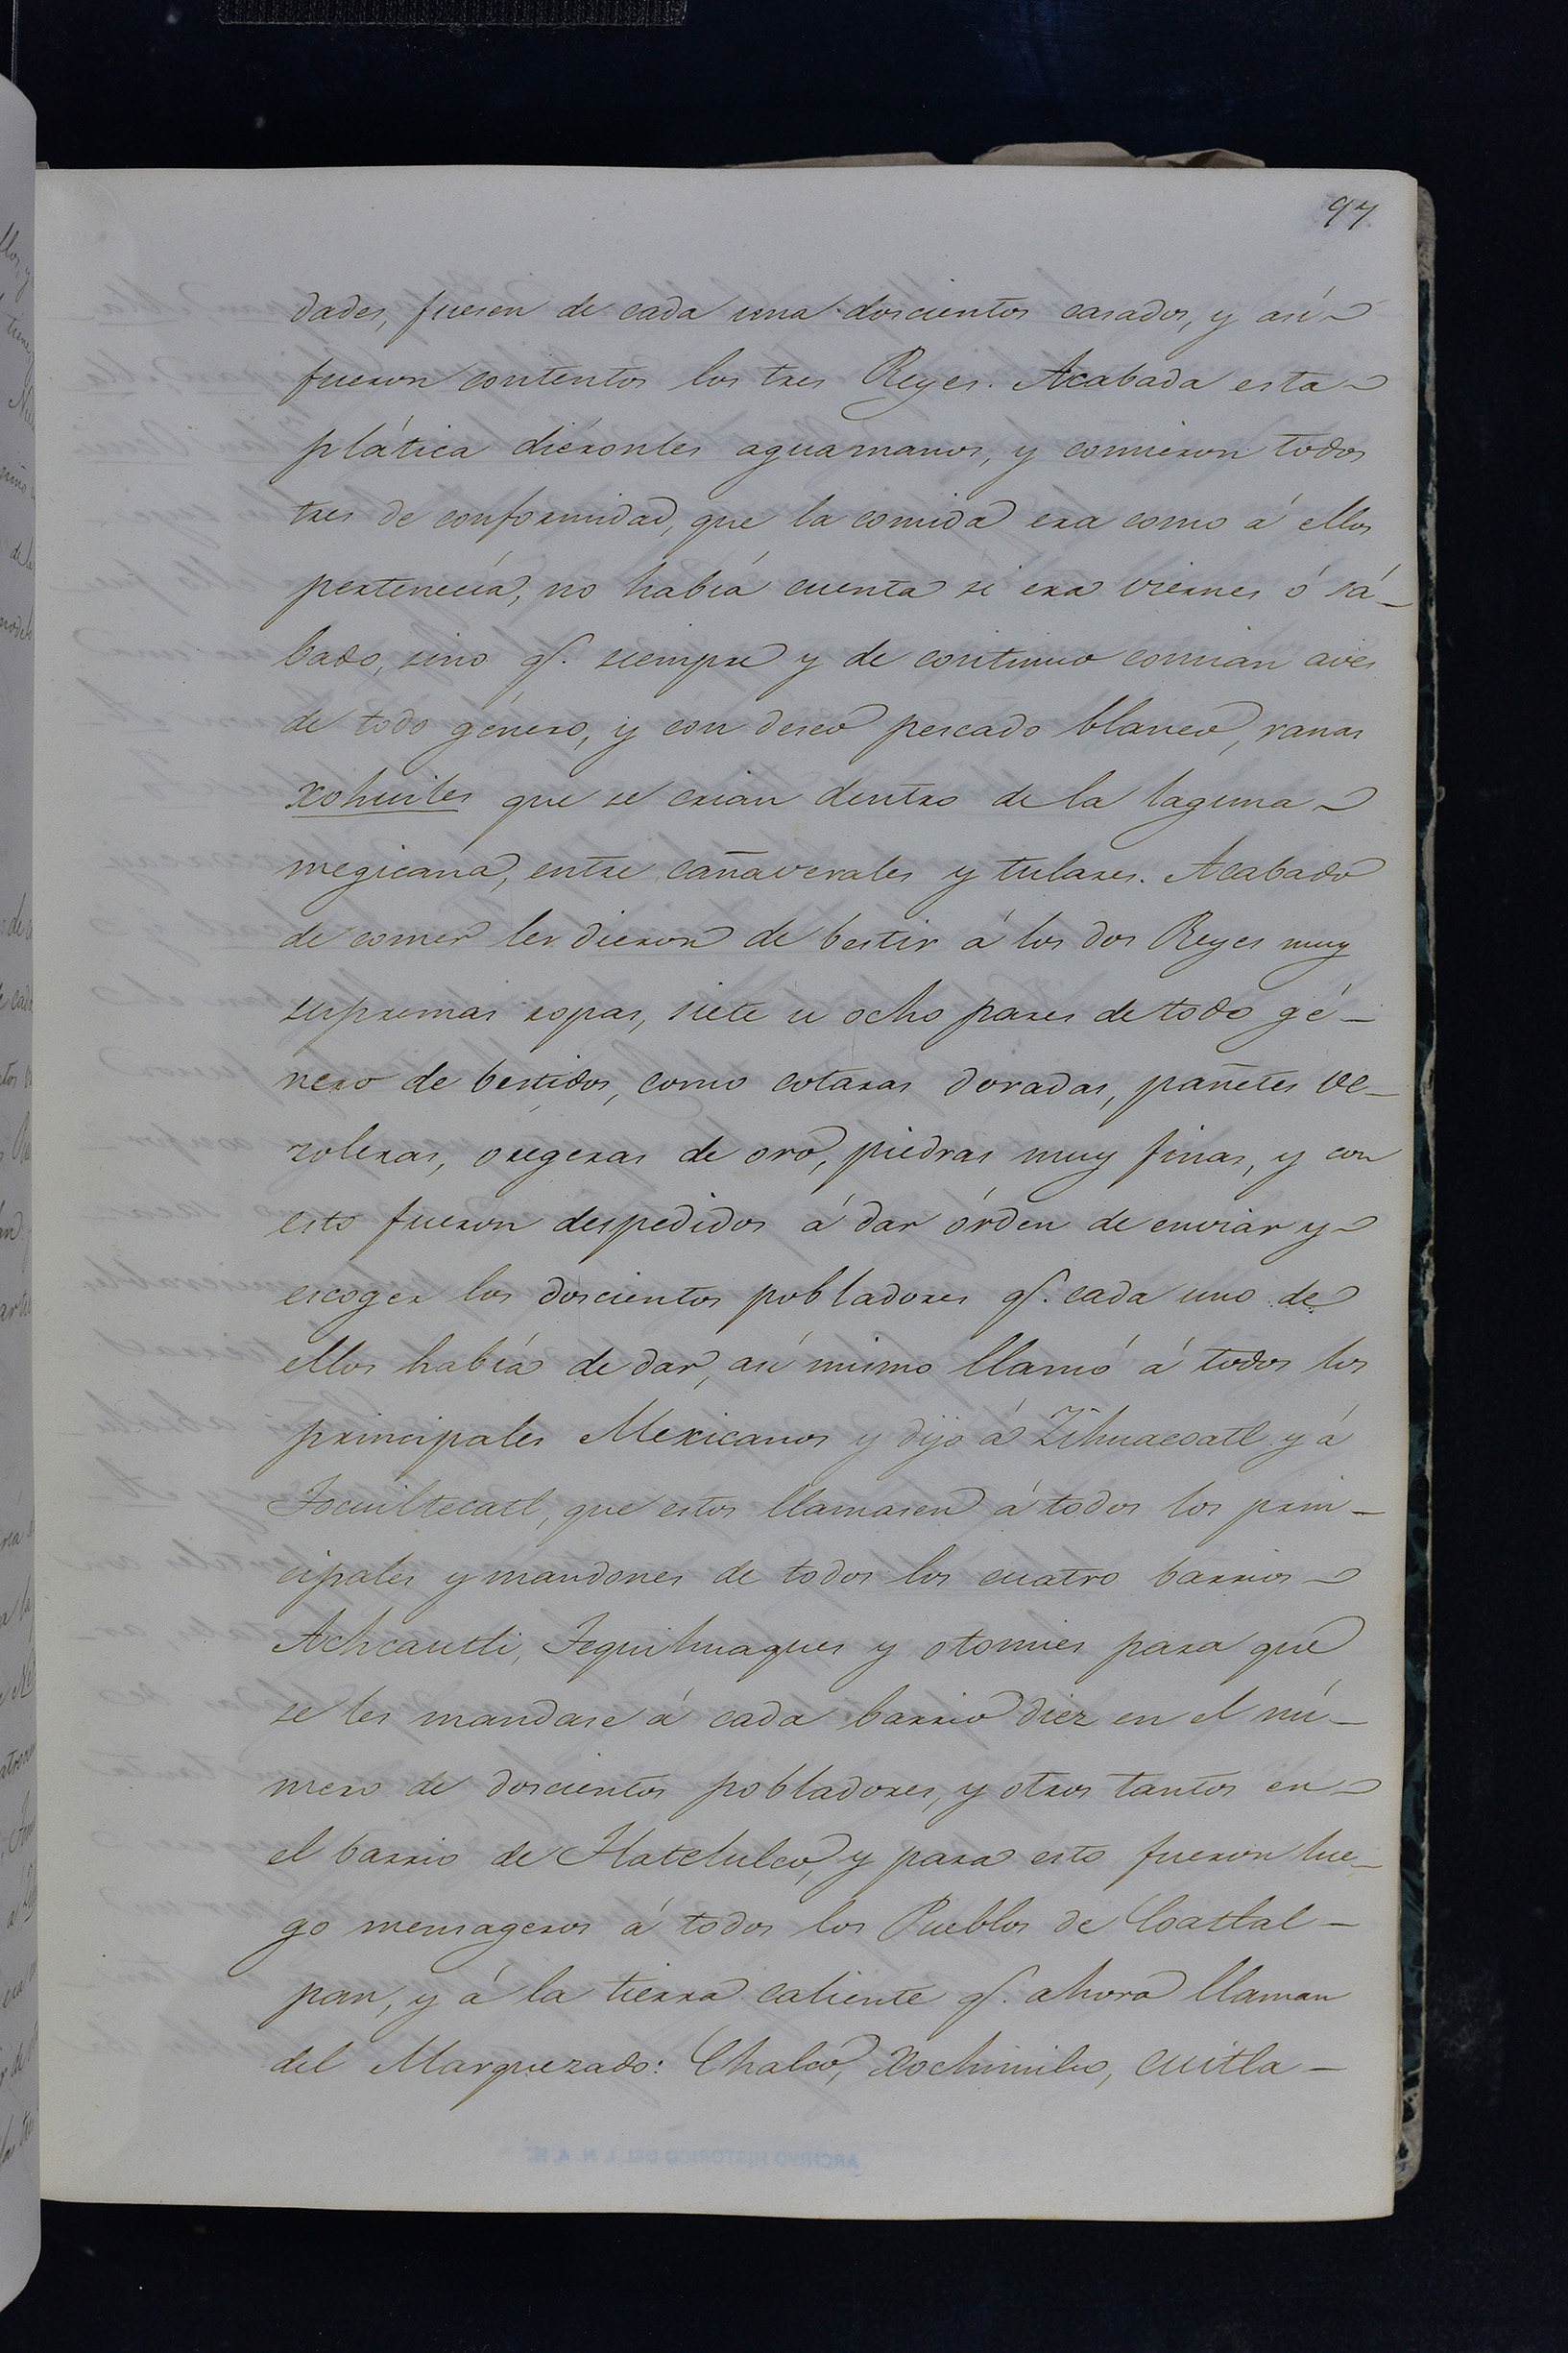 97
dades, fuesen de cada una doscientos casados, y así
fueron contentos los tres Reyes. Acabada esta
plática diéronles aguamanos, y comieron todos
tres de conformidad, que la comida era como á ellos
pertenecía, no había cuenta si era viernes ó sá-
bado, sino q.e siempre y de continuo comian aves
de todo género, y con deseo pescado blanco, ranas
xohuiles que se crian dentro de la laguna
megicana, entre cañaverales y tulares. Acabado
de comer les dieron de bestir á los dos Reyes muy
supremas ropas, siete u ocho pares de todo gé-
nero de bestidos, como cotaras doradas, pañetes ve-
zoleras, oregeras de oro, piedras muy finas, y con
esto fueron despedidos á dar órden de enviar y
escoger los doscientos pobladores q.e cada uno de
ellos había de dar, así mismo llamó á todos los
principales Mexicanos y dijo á Zihuacoatl y á
Tocuiltecatl, que estos llamasen á todos los prin-
cipales y mandones de todos los cuatro barrios
Achcautli, Tequihuaques y otomies para que
se les mandase á cada barrio diez en el nú-
mero de doscientos pobladores, y otros tantos en
el barrio de Tlatelulco, y para esto fueron lue-
go mensageros á todos los Pueblos de Coatlal-
pan, y á la tierra caliente q.e ahora llaman
del Marquezado: Chalco, Xochimilco, Cuitla-
ARCHIVO HISTORICO DEL I. N. A. H.